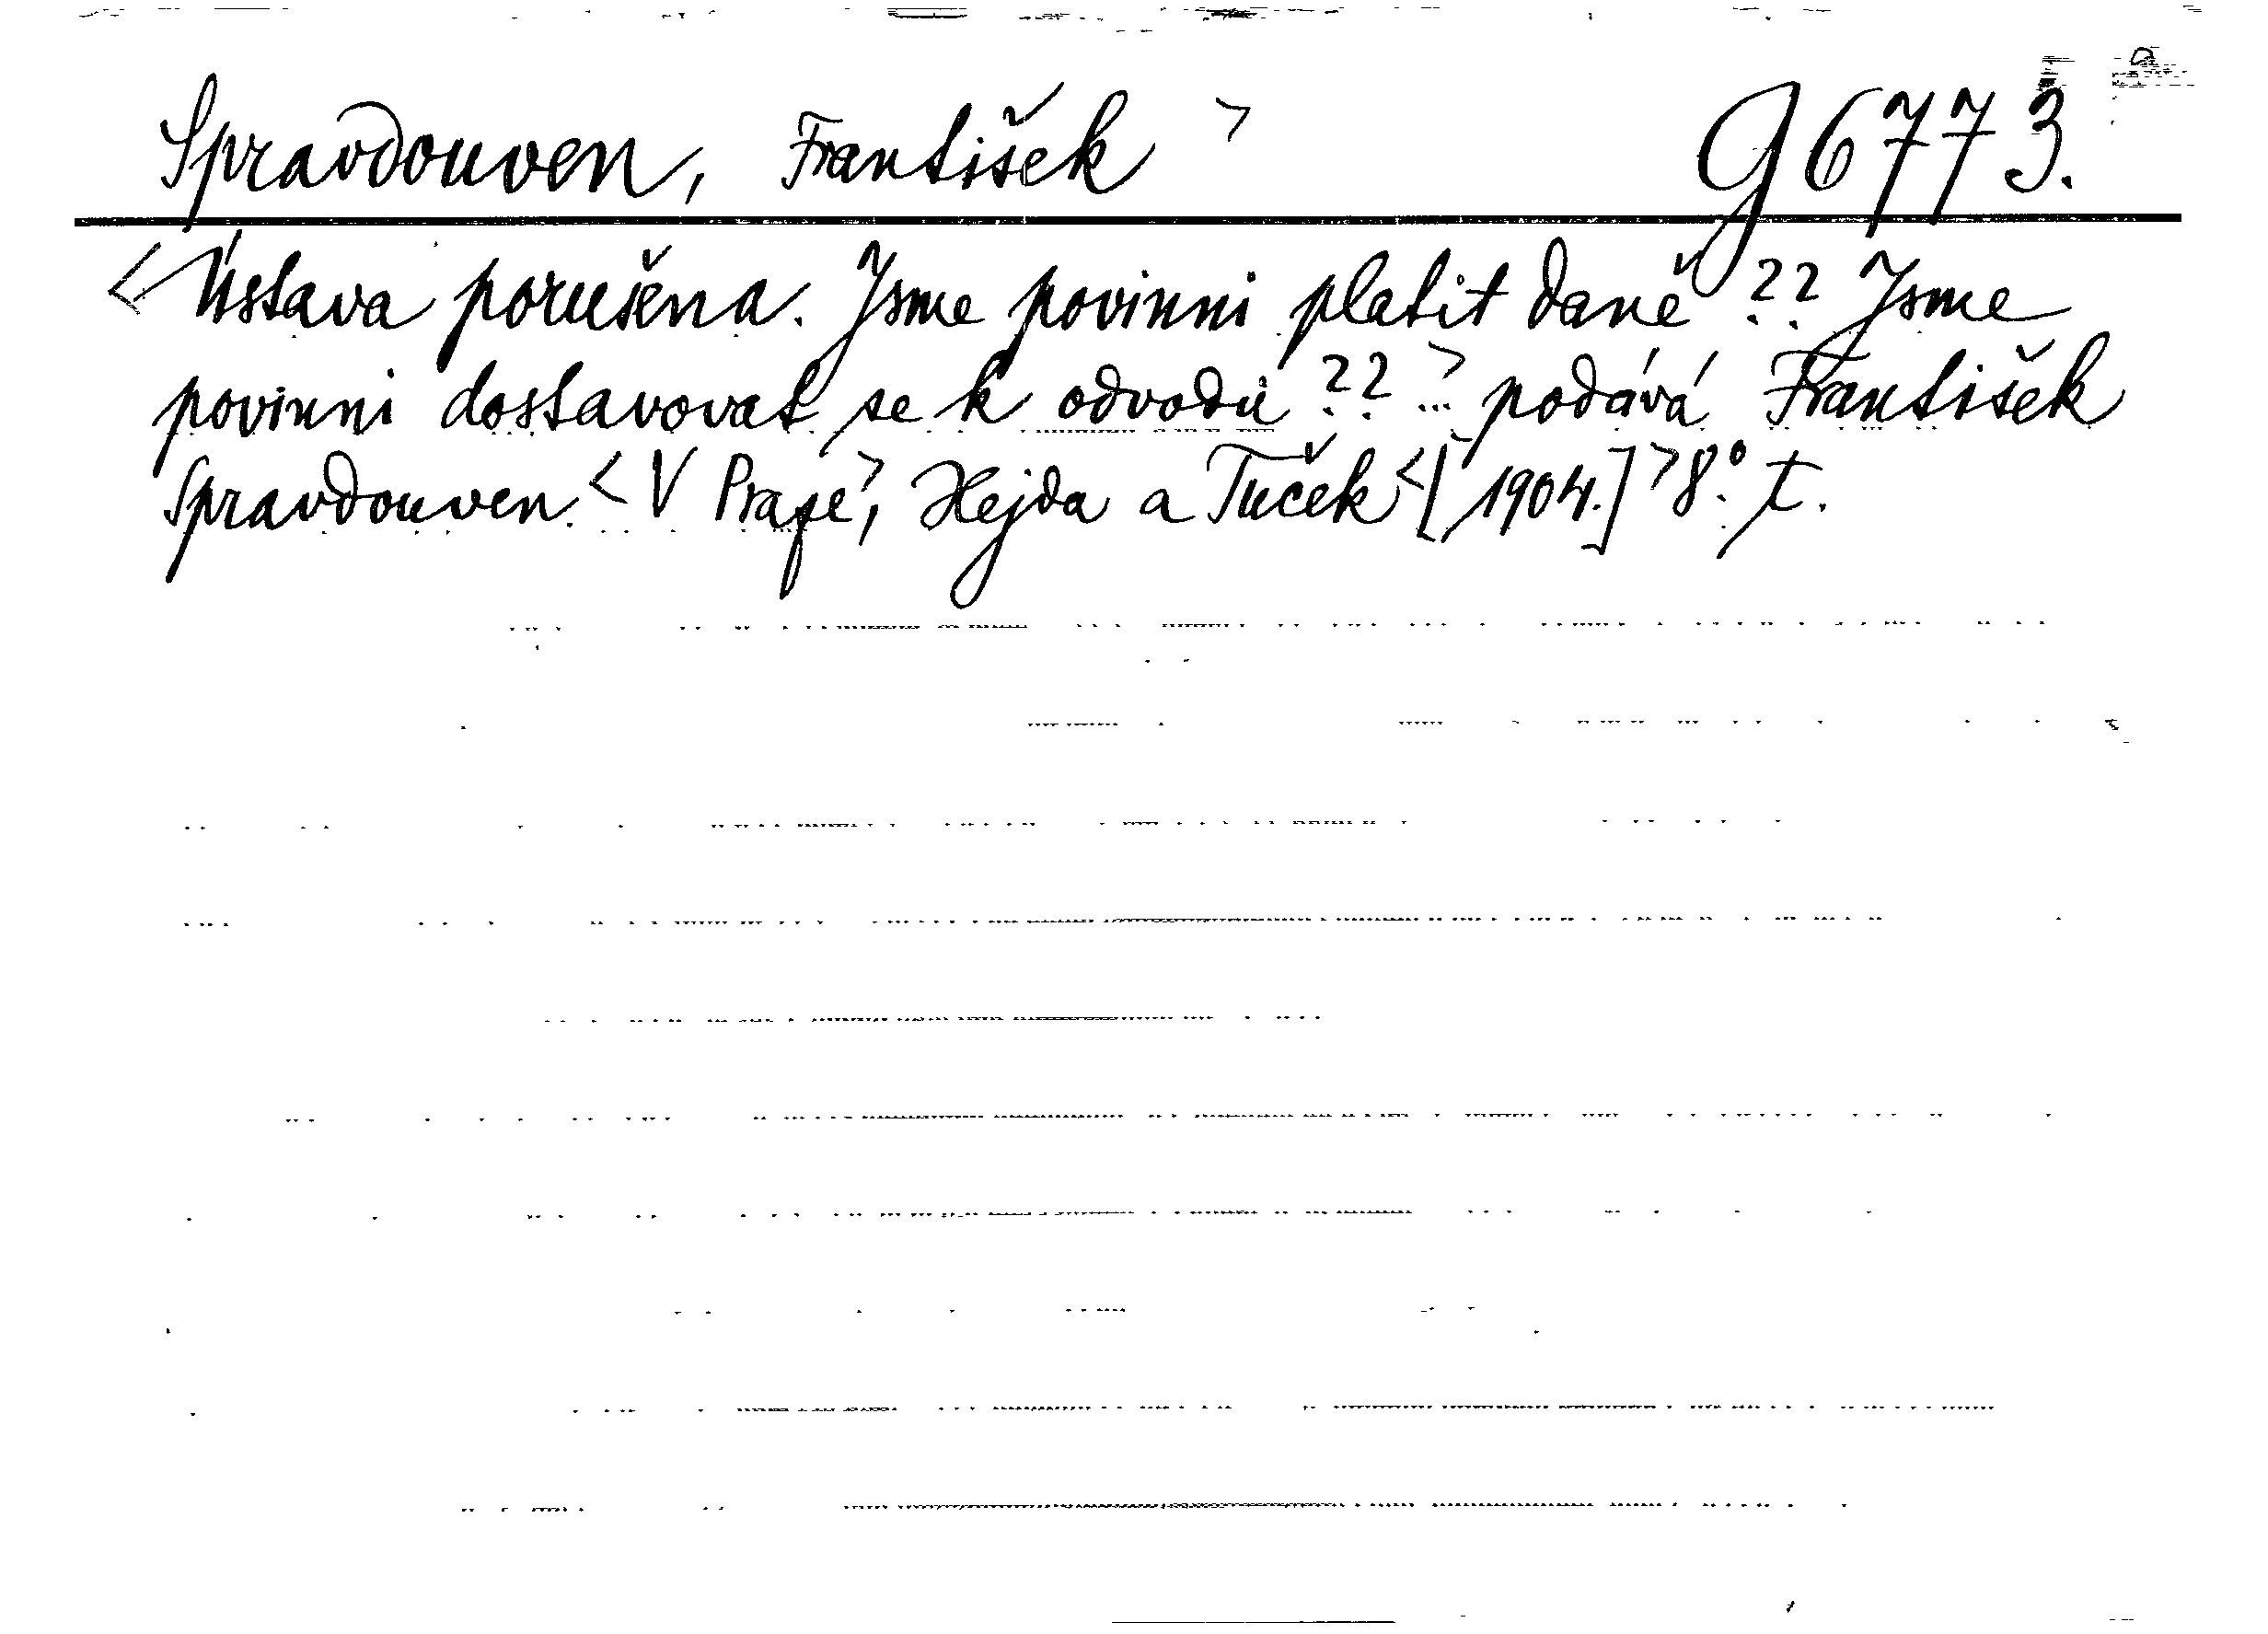 Spravdouven, František > g 6773.
< Ústava porušena. Jsme povinni platit daně ?? Jsme
povinni dostavovat se k odvodu ?? ... > podává František
Spravdouven < V Praze >, Hejda a Tuček < [1904.] > 8°. t.